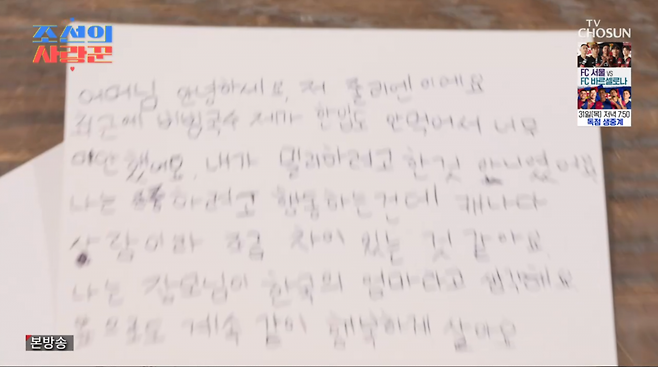 조선의
사랑꾼
TV
CHOSUN
FC 서울 vs
FC 바르셀로나
31일(목) 저녁 7:50
독점 생중계
어머님 안녕하세요, 저 줄리엔이에요
최근에 비빔국수 제가 한입도 안먹어서 너무
미안했어요. 내가 멀리하려고 한것 아니였어요
나는 하려고 행동하는건데 캐나다
사람이라 조금 차이 있는 것 같아요
나는 장모님이 한국의 엄마라고 생각해요
앞으로도 계속 같이 행복하게 살아요
본방송